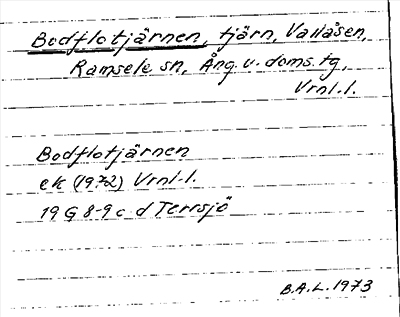 Bodflotjärnen, tjärn, Vallåsen,
Ramsele sn, Ång. v. doms. tg,
Vrnl.l.
Bodflotjärnen
ek (1972) Vrnl.l.
19 G 8-9 c-d Terrsjö
B.A.L. 1973